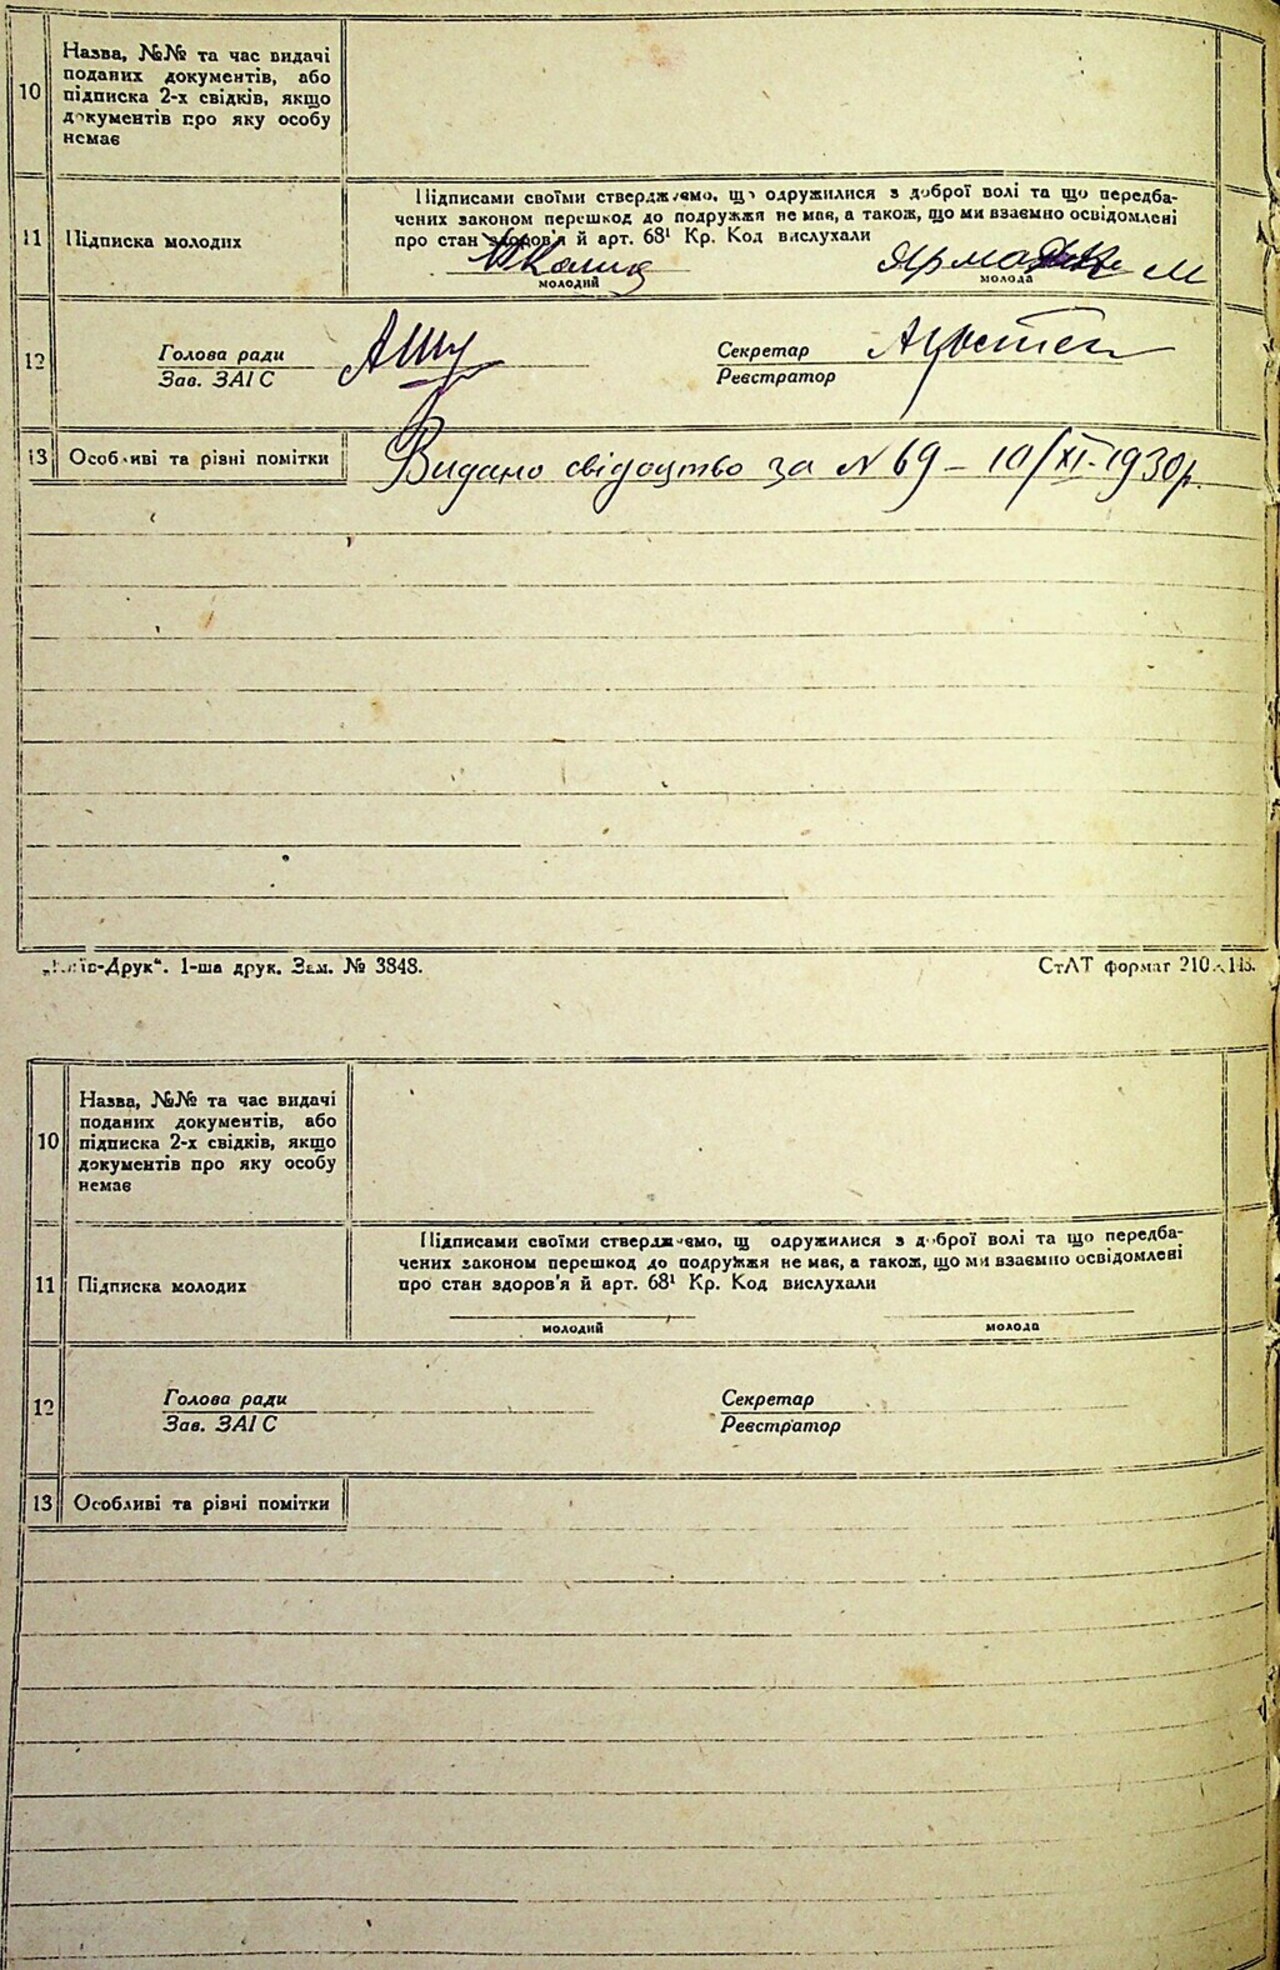 10
Назва, №№ та час видачі
поданих документів, або
підписка 2-х свідків, якщо
документів про яку особу
немає
11
Підписка молодих
Підписами своїми стверджуємо, що одружилися з доброї волі та що передба-
чених законом перешкод до подружжя не має, а також, що ми взаємно освідомлені
про стан здоров'я й арт. 68¹ Кр. Код вислухали
молодий
молода
12
Голова ради
Зав. ЗАГС
Секретар
Реєстратор
13
Особливі та різні помітки
Видано свідоцтво за N 69 – 10/XI-1930р.
„Київ-Друк“. 1-ша друк. Зам. № 3848.
СтАТ формат 210×148.
10
Назва, №№ та час видачі
поданих документів, або
підписка 2-х свідків, якщо
документів про яку особу
немає
11
Підписка молодих
Підписами своїми стверджуємо, щ одружилися з доброї волі та що передба-
чених законом перешкод до подружжя не має, а також, що ми взаємно освідомлені
про стан здоров'я й арт. 68¹ Кр. Код вислухали
молодий
молода
12
Голова ради
Зав. ЗАГС
Секретар
Реєстратор
13
Особливі та різні помітки